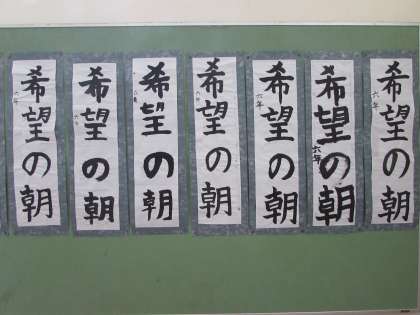 希望の朝
六年
希望の朝
六年
希望の朝
六年
希望の朝
六年
希望の朝
六年
希望の朝
六年
希望の朝
六年